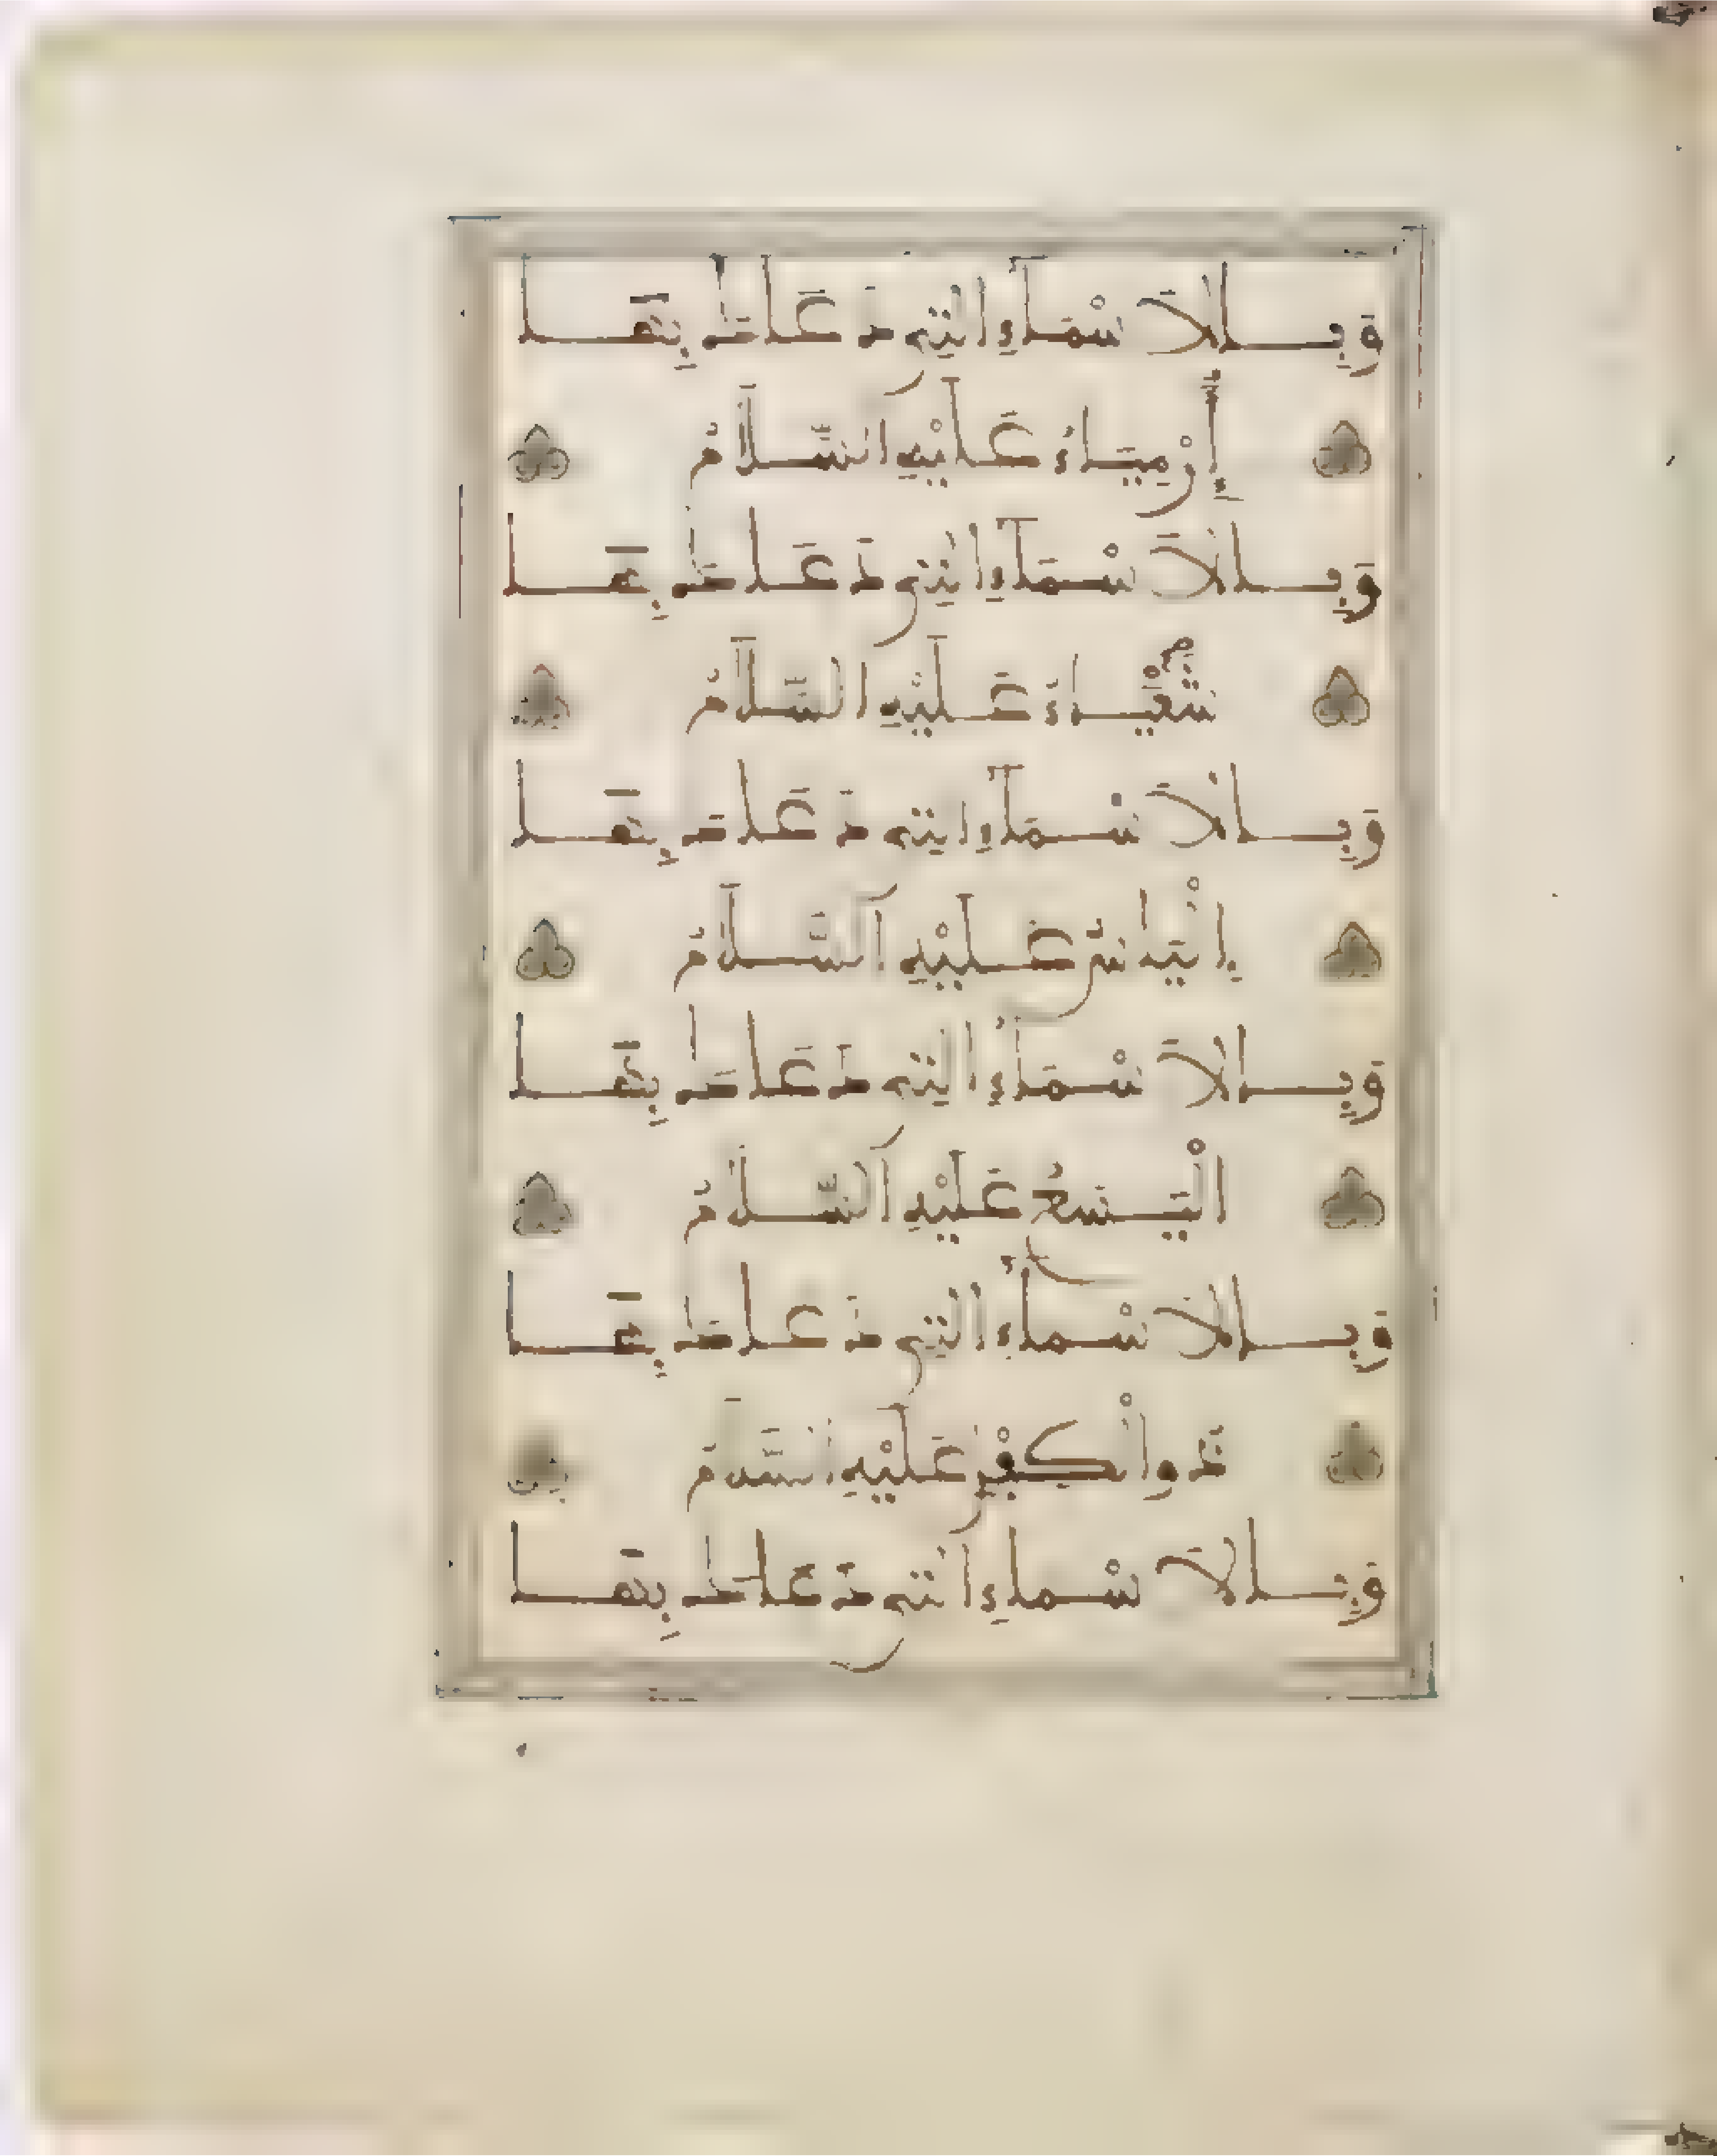 وَبِالْأَسْمَاءِ الَّتِي دَعَاكَ بِهَا
إِرْمِيَاءُ عَلَيْهِ السَّلَامُ
وَبِالْأَسْمَاءِ الَّتِي دَعَاكَ بِهَا
شَعْيَاءُ عَلَيْهِ السَّلَامُ
وَبِالْأَسْمَاءِ الَّتِي دَعَاكَ بِهَا
إِلْيَاسُ عَلَيْهِ السَّلَامُ
وَبِالْأَسْمَاءِ الَّتِي دَعَاكَ بِهَا
الْيَسَعُ عَلَيْهِ السَّلَامُ
وَبِالْأَسْمَاءِ الَّتِي دَعَاكَ بِهَا
ذُو الْكِفْلِ عَلَيْهِ السَّلَامُ
وَبِالْأَسْمَاءِ الَّتِي دَعَاكَ بِهَا